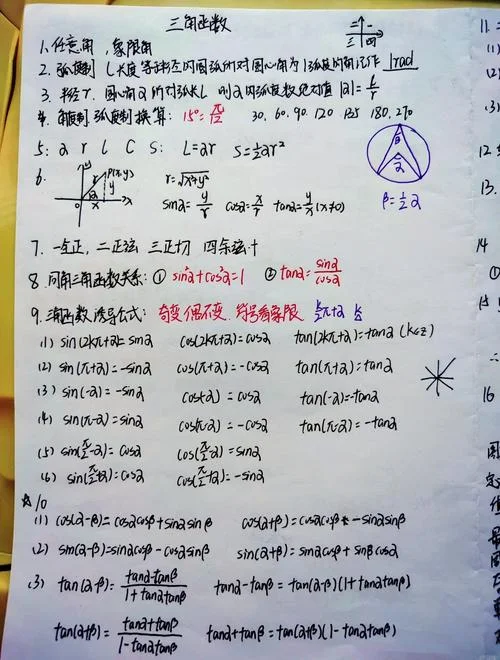 三角函数
1.任意角，象限角
二 一
三 四
2. 弧度制 l长度等于半径的圆弧所对圆心角为1弧度的角记作 1rad
3. 半径r. 圆心角α所对弧长l 则α的弧度数绝对值 |α|=l/r
4. 角度制 弧度制换算: 15°=π/12 30. 60. 90. 120 135 180. 270
5: α r l C S: L=αr S=½αr²
6. y P(x,y) r y α x o x r=√x²+y²
sinα=y/r cosα=x/r tanα=y/x(x≠0)
β α
β=½α
7. 一全正，二正弦 三正切 四余弦+
8. 同角三角函数关系: ① sin²α+cos²α=1 ② tanα=sinα/cosα
9. 三角函数诱导公式: 奇变偶不变 符号看象限 k/2π+α k
(1) sin(2kπ+α)=sinα cos(2kπ+α)=cosα tan(2kπ+α)=tanα (k∈z)
(2) sin(π+α)=-sinα cos(π+α)=-cosα tan(π+α)=tanα
(3) sin(-α)=-sinα cos(-α)=cosα tan(-α)=-tanα
(4) sin(π-α)=sinα cos(π-α)=-cosα tan(π-α)=-tanα
(5) sin(π/2-α)=cosα cos(π/2-α)=sinα
(6) sin(π/2+α)=cosα cos(π/2+α)=-sinα
☆10
(1) cos(α-β)=cosαcosβ+sinαsinβ cos(α+β)=cosαcosβ-sinαsinβ
(2) sin(α-β)=sinαcosβ-cosαsinβ sin(α+β)=sinαcosβ+sinβcosα
(3) tan(α-β)=tanα-tanβ/1+tanαtanβ tanα-tanβ=tan(α-β)(1+tanαtanβ)
tan(α+β)=tanα+tanβ/1-tanαtanβ tanα+tanβ=tan(α+β)(1-tanαtanβ)
11.
(1)
(2)
12
13.
14
①
15
16